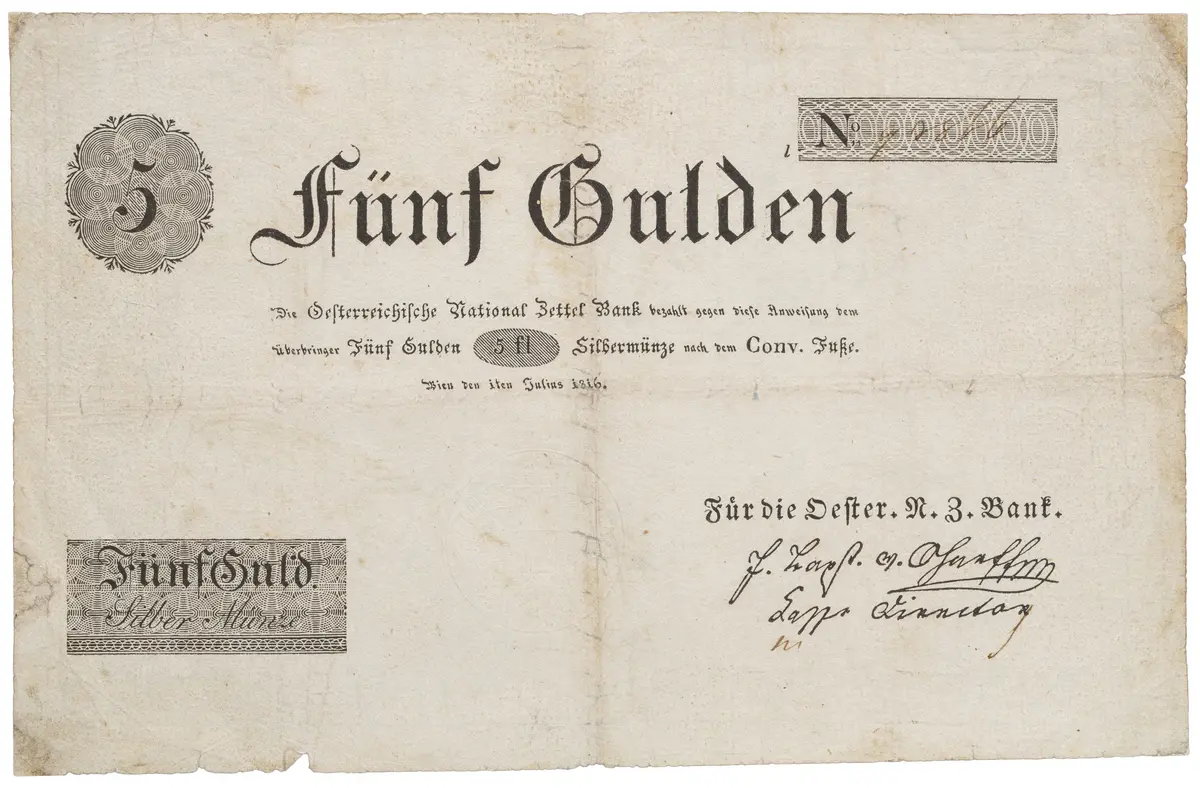 5
l
No
Fünf Gulden
Die Oesterreichische National Zettel Bank bezahlt gegen diese Anweisung dem
Überbringer Fünf Gulden 5 fl Silbermünze nach dem Conv. Fuße.
Wien den 1ten Julius 1816.
Für die Oester. N. Z. Bank.
Cassa Director
Fünf Guld.
Silber Münze